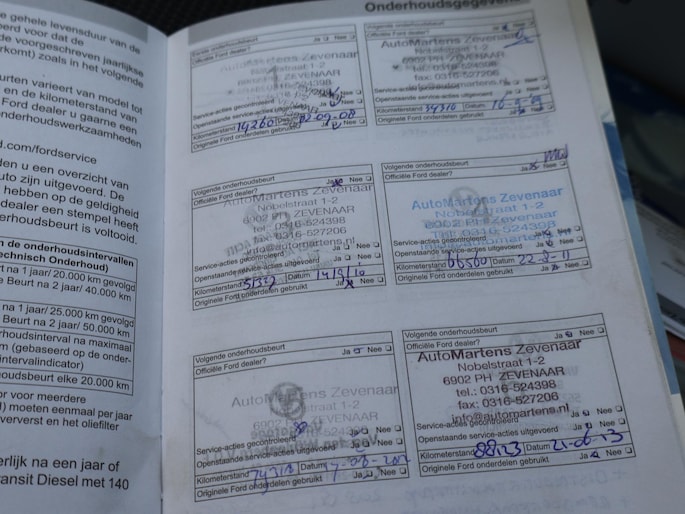 e gehele levensduur van de
oerd voor dat de
e voorgeschreven jaarlijkse
rkomt) zoals in het volgende
urten varieert van model tot
en de kilometerstand van
Ford dealer u gaarne een
onderhoudswerkzaamheden
d.com/fordservice
den u een overzicht van
uto zijn uitgevoerd. De
hebben op de geldigheid
dealer een stempel heeft
erhoudsbeurt is voltooid.
n de onderhoudsintervallen
echnisch Onderhoud)
rt na 1 jaar/ 20.000 km gevolgd
e Beurt na 2 jaar/ 40.000
km
na 1 jaar/ 25.000 km gevolgd
Beurt na 2 jaar/ 50.000 km
rhoudsinterval na maximaal
m (gebaseerd op de onder-
intervalindicator)
udsbeurt elke 20.000 km
or voor meerdere
l) moeten eenmaal per jaar
ververst en het oliefilter
erlijk na een jaar of
ransit Diesel met 140
Onderhoudsgegevens
Eerste onderhoudsbeurt
Officiële Ford dealer? Ja Nee
AutoMartens Zevenaar
Service-acties gecontroleerd Ja Nee
Openstaande service-acties uitgevoerd Ja Nee
Kilometerstand 14260 Datum 02-09-08
Originele Ford onderdelen gebruikt Ja Nee
Volgende onderhoudsbeurt
Officiële Ford dealer? Ja Nee
AutoMartens Zevenaar
Nobelstraat 1-2
6902 PH ZEVENAAR
tel.: 0316-524398
fax: 0316-527206
info@automartens.nl
Service-acties gecontroleerd Ja Nee
Openstaande service-acties uitgevoerd Ja Nee
Kilometerstand 34310 Datum
Originele Ford onderdelen gebruikt Ja Nee
Volgende onderhoudsbeurt Ja Nee
Officiële Ford dealer?
AutoMartens Zevenaar
Nobelstraat 1-2
6902 PH ZEVENAAR
tel.: 0316-524398
fax: 0316-527206
info@automartens.nl
Service-acties gecontroleerd Ja Nee
Openstaande service-acties uitgevoerd Ja Nee
Kilometerstand Datum
Originele Ford onderdelen gebruikt Ja Nee
Volgende onderhoudsbeurt Ja Nee
Officiële Ford dealer?
AutoMartens Zevenaar
Nobelstraat 1-2
6902 PH ZEVENAAR
Tel: 0316-524398
Service-acties gecontroleerd Ja Nee
Openstaande service-acties uitgevoerd Ja Nee
Kilometerstand 66560 Datum 22-2-11
Originele Ford onderdelen gebruikt Ja Nee
Volgende onderhoudsbeurt Ja Nee
Officiële Ford dealer?
AutoMartens Zevenaar
Nobelstraat 1-2
Service-acties gecontroleerd Ja Nee
Openstaande service-acties uitgevoerd Ja Nee
Kilometerstand Datum
Originele Ford onderdelen gebruikt Ja Nee
Volgende onderhoudsbeurt
Officiële Ford dealer? Ja Nee
AutoMartens Zevenaar
Nobelstraat 1-2
6902 PH ZEVENAAR
tel.: 0316-524398
fax: 0316-527206
info@automartens.nl
Service-acties gecontroleerd Ja Nee
Openstaande service-acties uitgevoerd Ja Nee
Kilometerstand 88123 Datum 21-06-13
Originele Ford onderdelen gebruikt Ja Nee